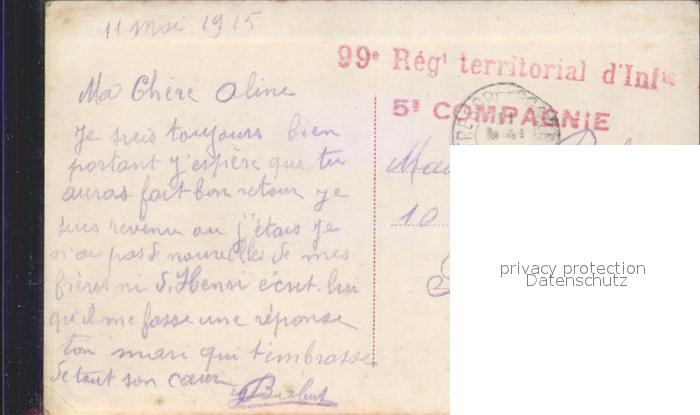 11 mai 1915
99e Régt territorial d'Infie
5e COMPAGNIE
Ma Chère Aline
Je suis toujours bien
portant j'espère que tu
auras fait bon retour je
suis revenu ou j'étais je
n'ai pas de nouvelles de mes
frères ni d'Henri écrit-lui
qu'il me fasse une réponse
ton mari qui t'embrasse
de tout son cœur
10
privacy protection
Datenschutz